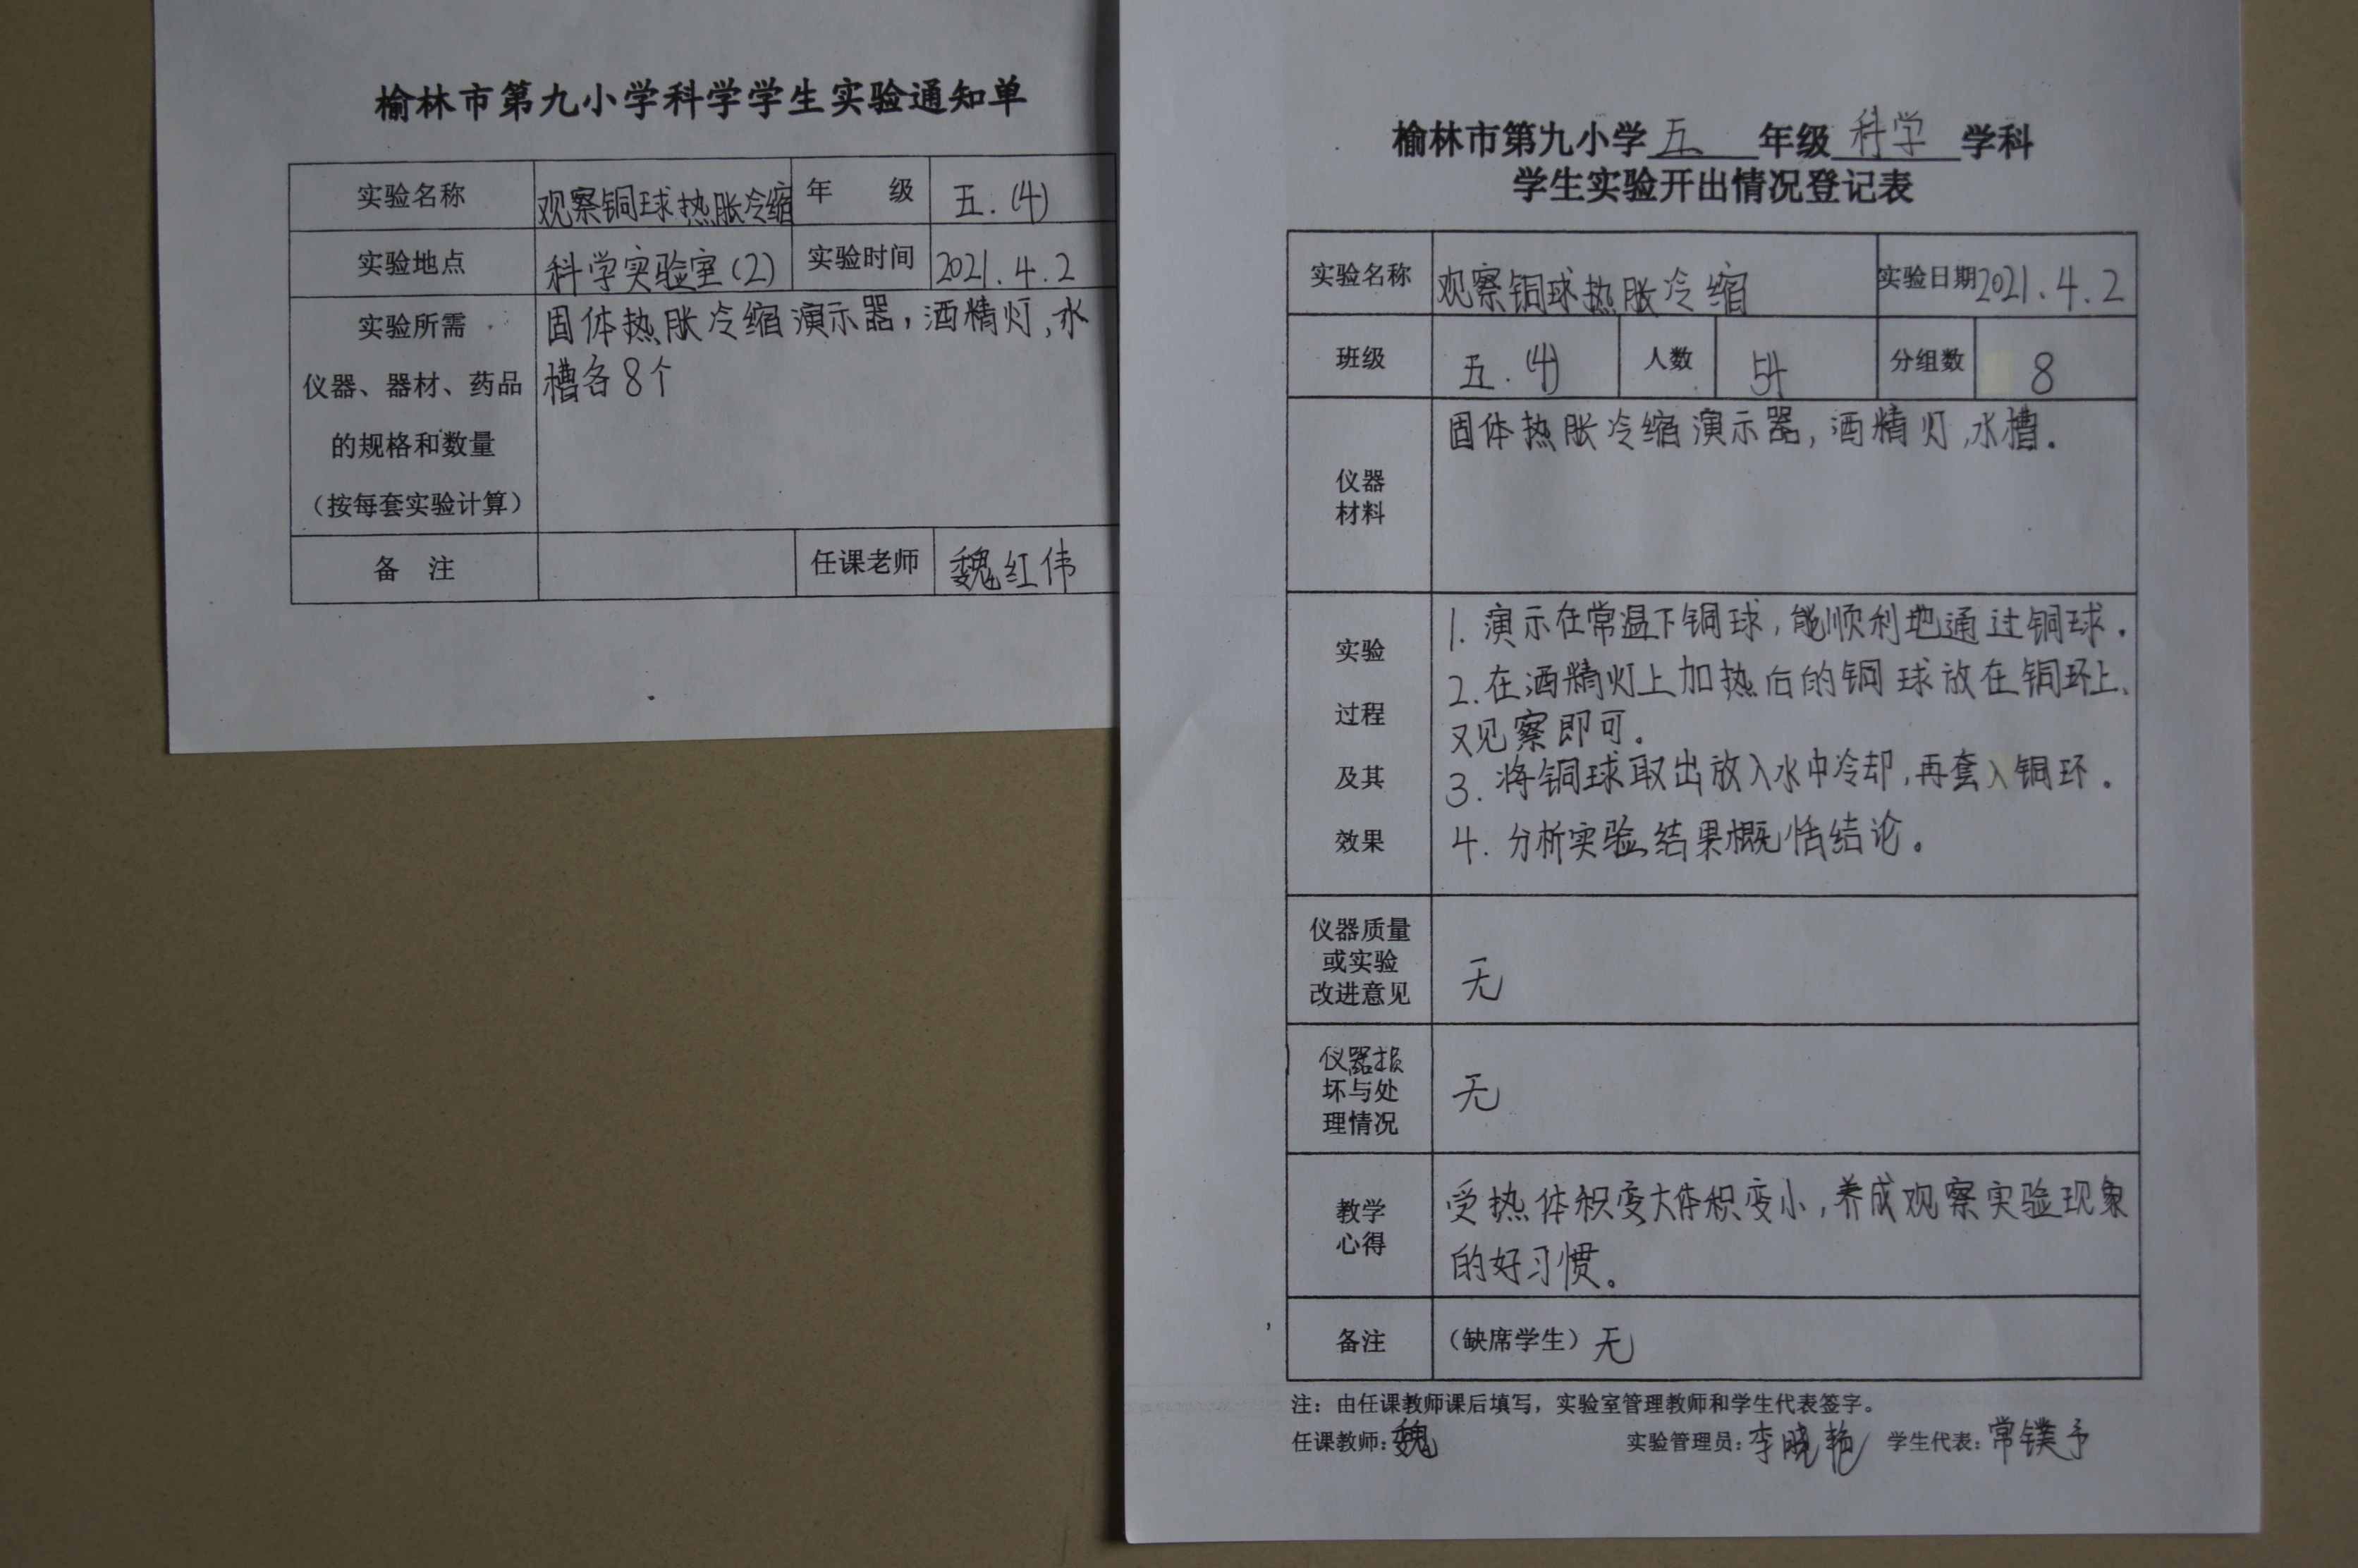 榆林市第九小学科学学生实验通知单
实验名称 观察铜球热胀冷缩 年 级 五.(4)
实验地点 科学实验室(2) 实验时间 2021.4.2
实验所需
仪器、器材、药品
的规格和数量
（按每套实验计算）
固体热胀冷缩演示器，酒精灯,水
槽各8个
备 注 任课老师 魏红伟
榆林市第九小学五年级科学学科
学生实验开出情况登记表
实验名称 观察铜球热胀冷缩 实验日期 2021.4.2
班级 五.(4) 人数 54 分组数 8
仪器
材料
固体热胀冷缩演示器,酒精灯,水槽.
实验
过程
及其
效果
1.演示在常温下铜球,能顺利地通过铜球.
2.在酒精灯上加热后的铜球放在铜环上、
又见察即可。
3.将铜球取出放入水中冷却,再套入铜环。
4.分析实验结果概括结论。
仪器质量
或实验
改进意见
无
仪器损
坏与处
理情况
无
教学
心得
受热体积变大体积变小,养成观察实验现象
的好习惯。
备注 （缺席学生）无
注：由任课教师课后填写，实验室管理教师和学生代表签字。
任课教师:魏 实验管理员:李晓艳 学生代表:常镤予